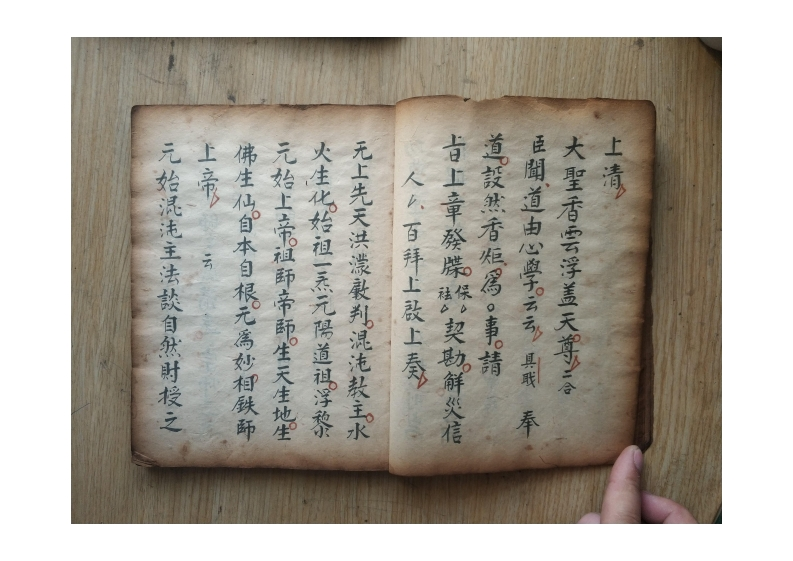 上清
大聖香雲浮盖天尊 二合
臣聞道由心學云云 具戝 奉
道設然香炬為○事請
上章發牒保 契勘解災信
人厶百拜上啟上奏
无上先天洪濛劂判混沌教主水
火生化始祖一炁元陽道祖浮黎
元始上帝祖師帝師生天生地生
佛生仙自本自根元為妙相鉄師
上帝 云
元始混沌主法談自然財授之